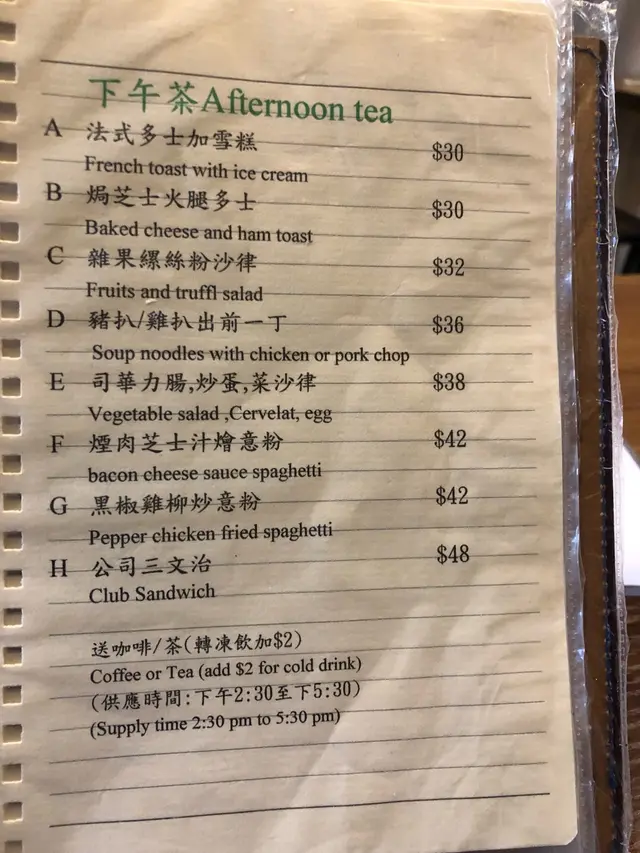 下午茶Afternoon tea
A 法式多士加雪糕 $30
French toast with ice cream
B 焗芝士火腿多士 $30
Baked cheese and ham toast
C 雜果縲絲粉沙律 $32
Fruits and truffl salad
D 豬扒/雞扒出前一丁 $36
Soup noodles with chicken or pork chop
E 司華力腸,炒蛋,菜沙律 $38
Vegetable salad ,Cervelat, egg
F 煙肉芝士汁燴意粉 $42
bacon cheese sauce spaghetti
G 黑椒雞柳炒意粉 $42
Pepper chicken fried spaghetti
H 公司三文治 $48
Club Sandwich
送咖啡/茶(轉凍飲加$2)
Coffee or Tea (add $2 for cold drink)
(供應時間:下午2:30至下5:30)
(Supply time 2:30 pm to 5:30 pm)